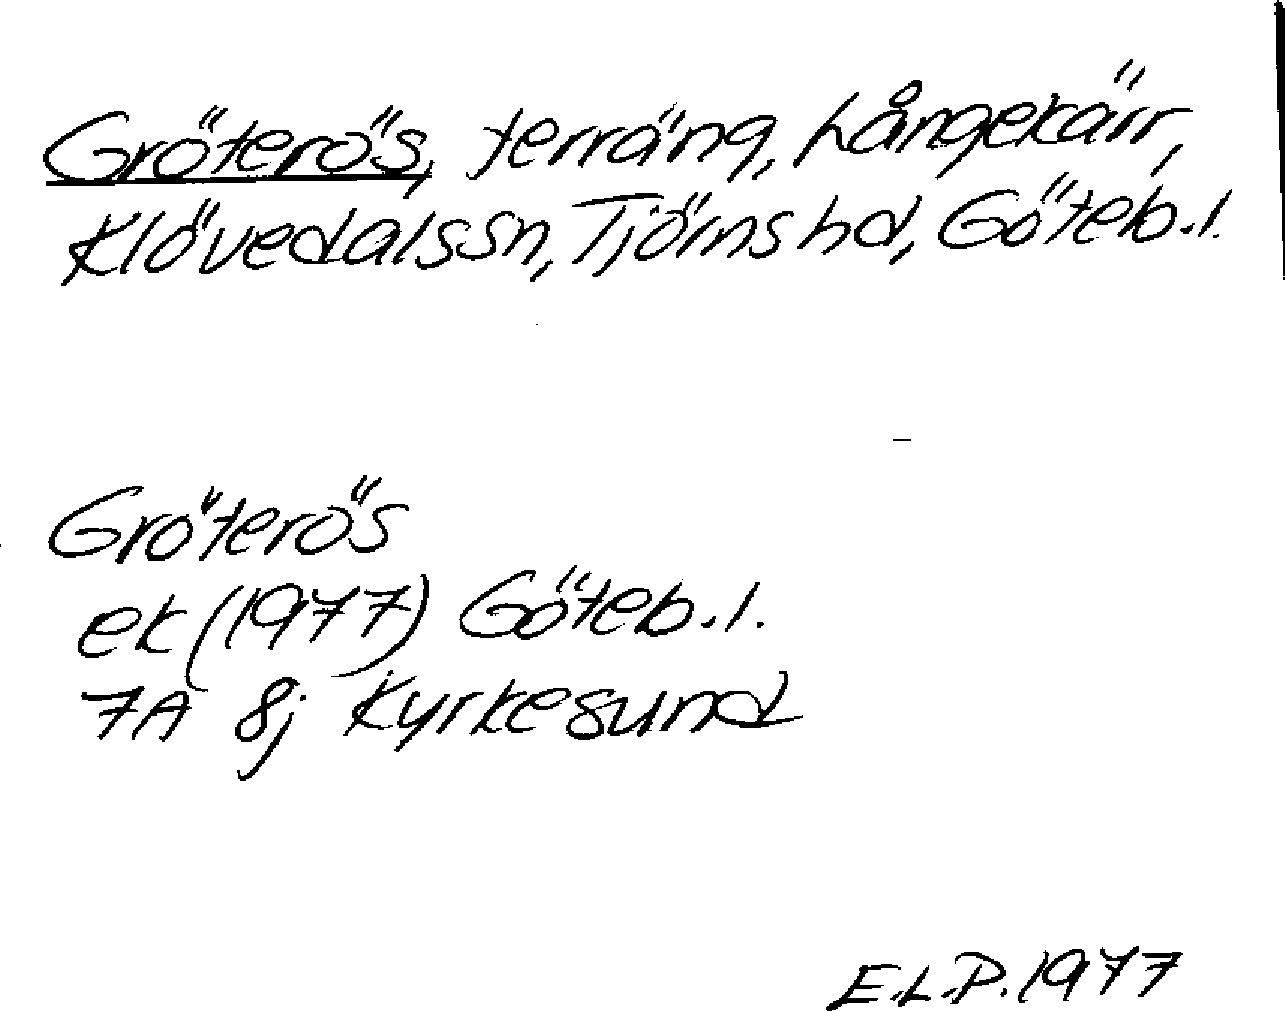 Gröterös, terräng, Långekärr,
Klövedalssn, Tjörns hd, Göteb.l.
Gröterös
ek (1977) Göteb.l.
7A 8j Kyrkesund
E.L.P. 1977